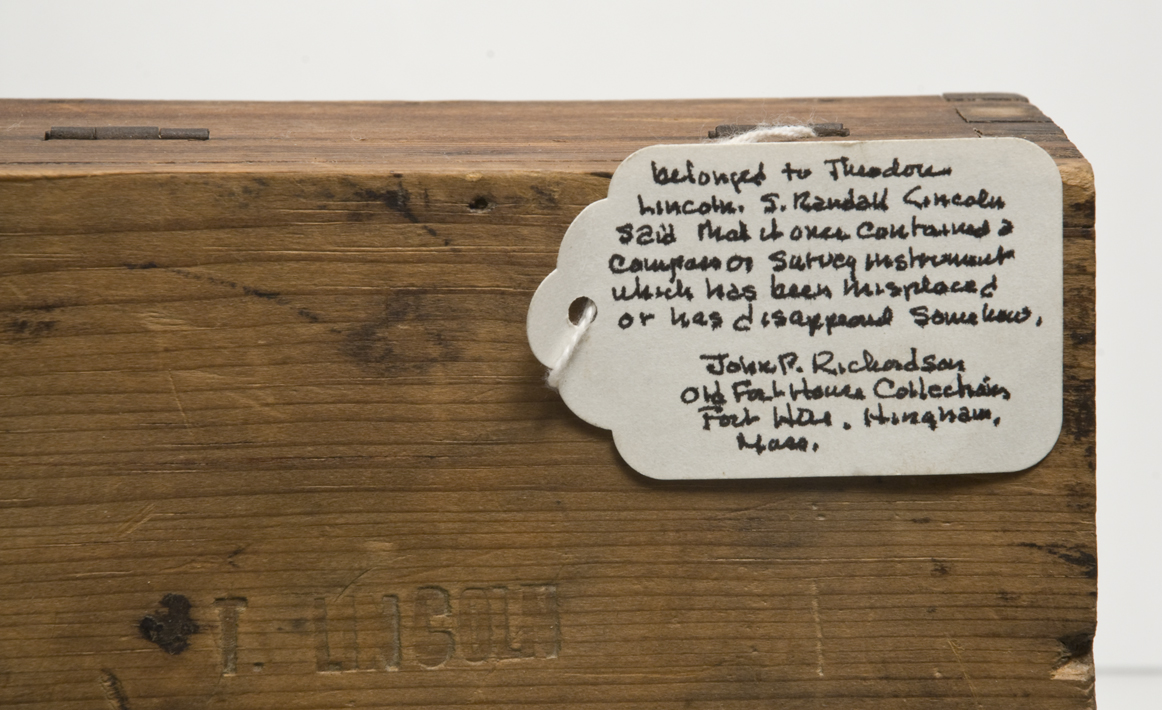 belonged to Theodore
Lincoln. S. Randall Lincoln
said that it once contained a
compass or survey instrument
which has been misplaced
or has disappeared somehow.
John P. Richardson
Old Fort House Collection
Fort Hill. Hingham,
Mass.
T. LINCOLN